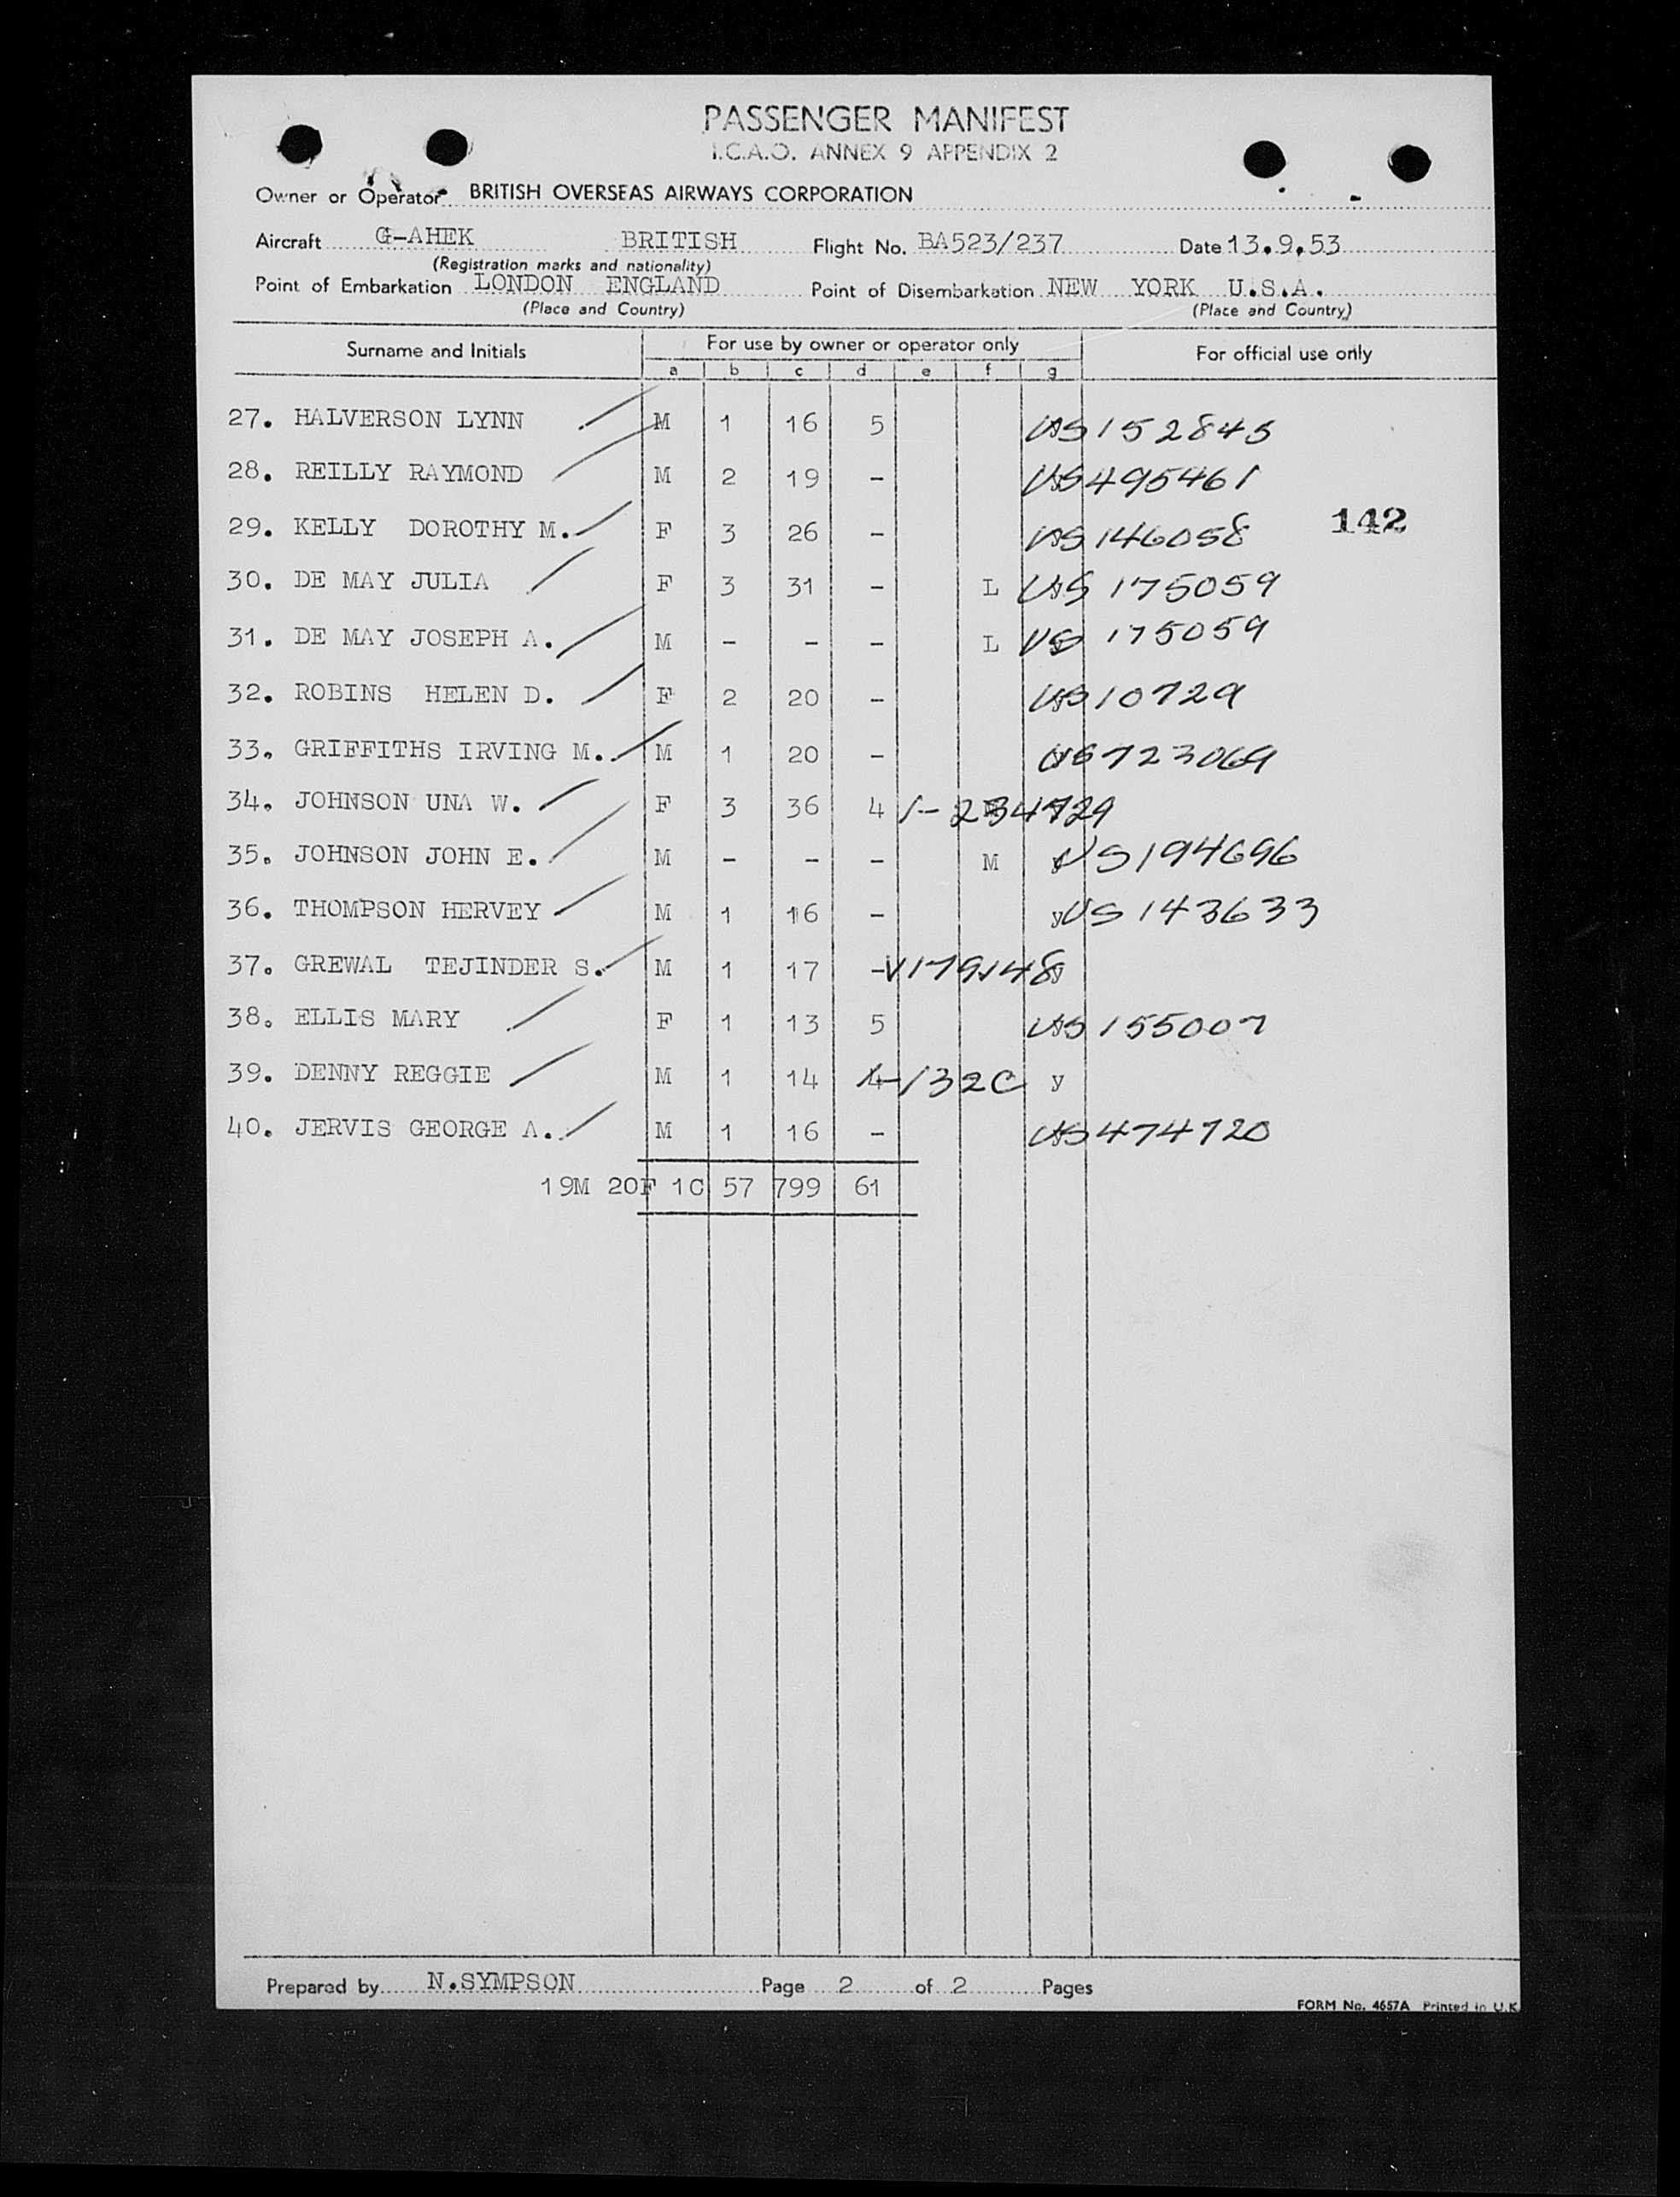 PASSENGER MANIFEST
I.C.A.O. ANNEX 9 APPENDIX 2
Owner or Operator BRITISH OVERSEAS AIRWAYS CORPORATION
Aircraft G-AHEK BRITISH Flight No. BA523/237 Date 13.9.53
(Registration marks and nationality)
Point of Embarkation LONDON ENGLAND Point of Disembarkation NEW YORK U.S.A.
(Place and Country) (Place and Country)
Surname and Initials For use by owner or operator only For official use only
a b c d e f g
27. HALVERSON LYNN M 1 16 5 US 152845
28. REILLY RAYMOND M 2 19 - US 495461
29. KELLY DOROTHY M. F 3 26 - US 146058 142
30. DE MAY JULIA F 3 31 - L US 175059
31. DE MAY JOSEPH A. M - - - L US 175059
32. ROBINS HELEN D. F 2 20 - US 10729
33. GRIFFITHS IRVING M. M 1 20 - US 723069
34. JOHNSON UNA W. F 3 36 4 1-234729
35. JOHNSON JOHN E. M - - - M US 194696
36. THOMPSON HERVEY M 1 16 - y US 143633
37. GREWAL TEJINDER S. M 1 17 - V179148
38. ELLIS MARY F 1 13 5 US 155007
39. DENNY REGGIE M 1 14 4 1-132C y
40. JERVIS GEORGE A. M 1 16 - US 474720
19M 20F 1C 57 799 61
Prepared by N.SYMPSON Page 2 of 2 Pages
FORM No. 4657A Printed in U.K